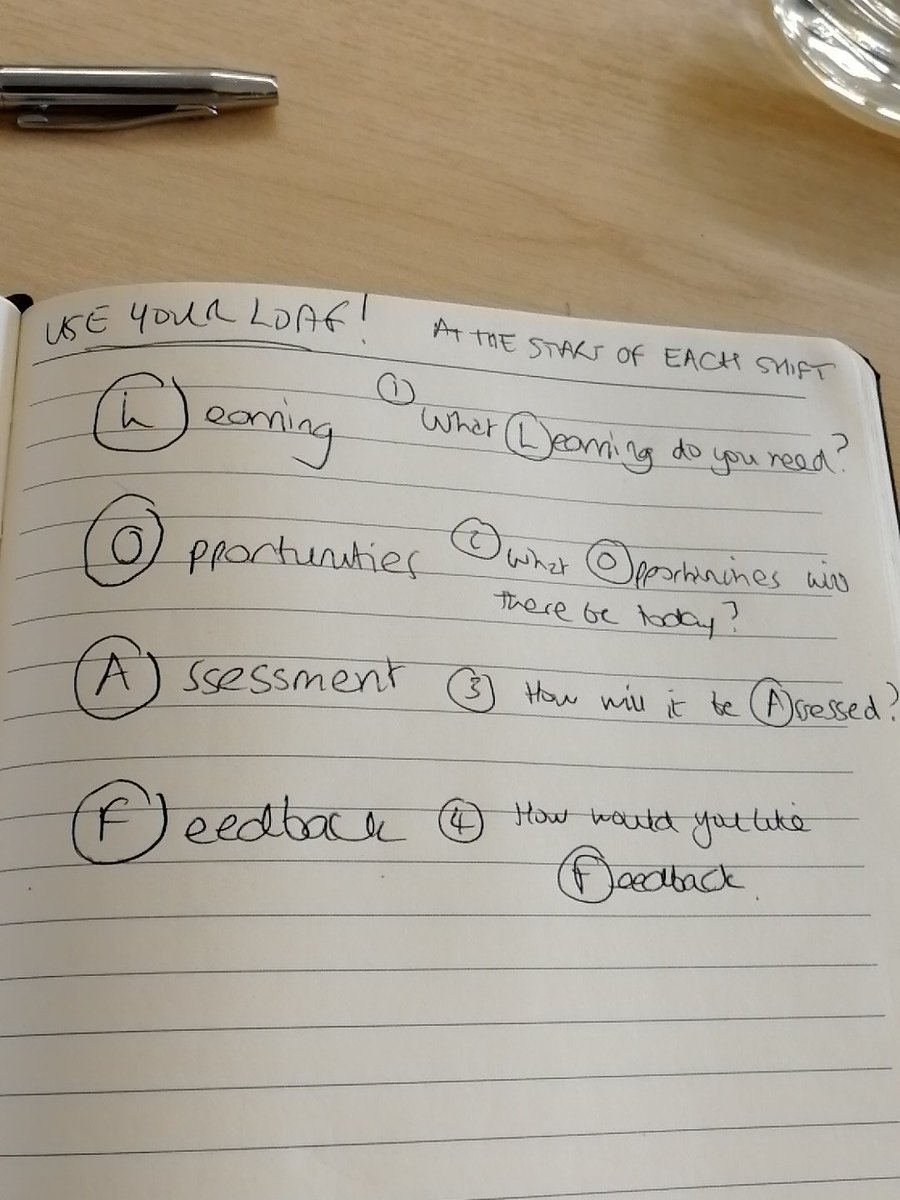 USE YOUR LOAF! AT THE START OF EACH SHIFT
Learning ① What Learning do you need?
Opportunities ② What Opportunities will
there be today?
Assessment ③ How will it be Assessed?
Feedback ④ How would you like
Feedback.